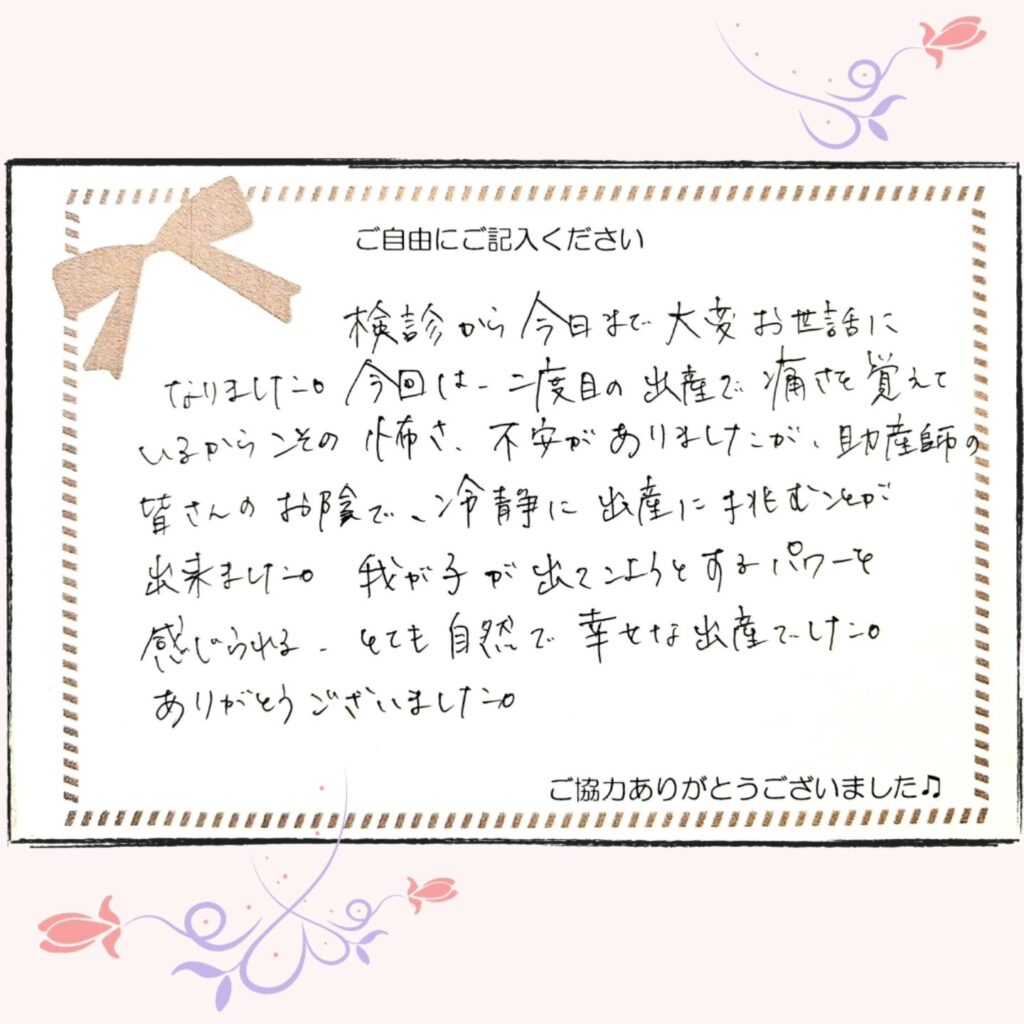 ご自由にご記入ください
検診から今日まで大変お世話に
なりました。今回は、二度目の出産で痛さを覚えて
いるからこその怖さ、不安がありましたが、助産師の
皆さんのお陰で、冷静に出産に挑むことが
出来ました。我が子が出てこようとするパワーを
感じられる、とても自然で幸せな出産でした。
ありがとうございました。
ご協力ありがとうございました♫